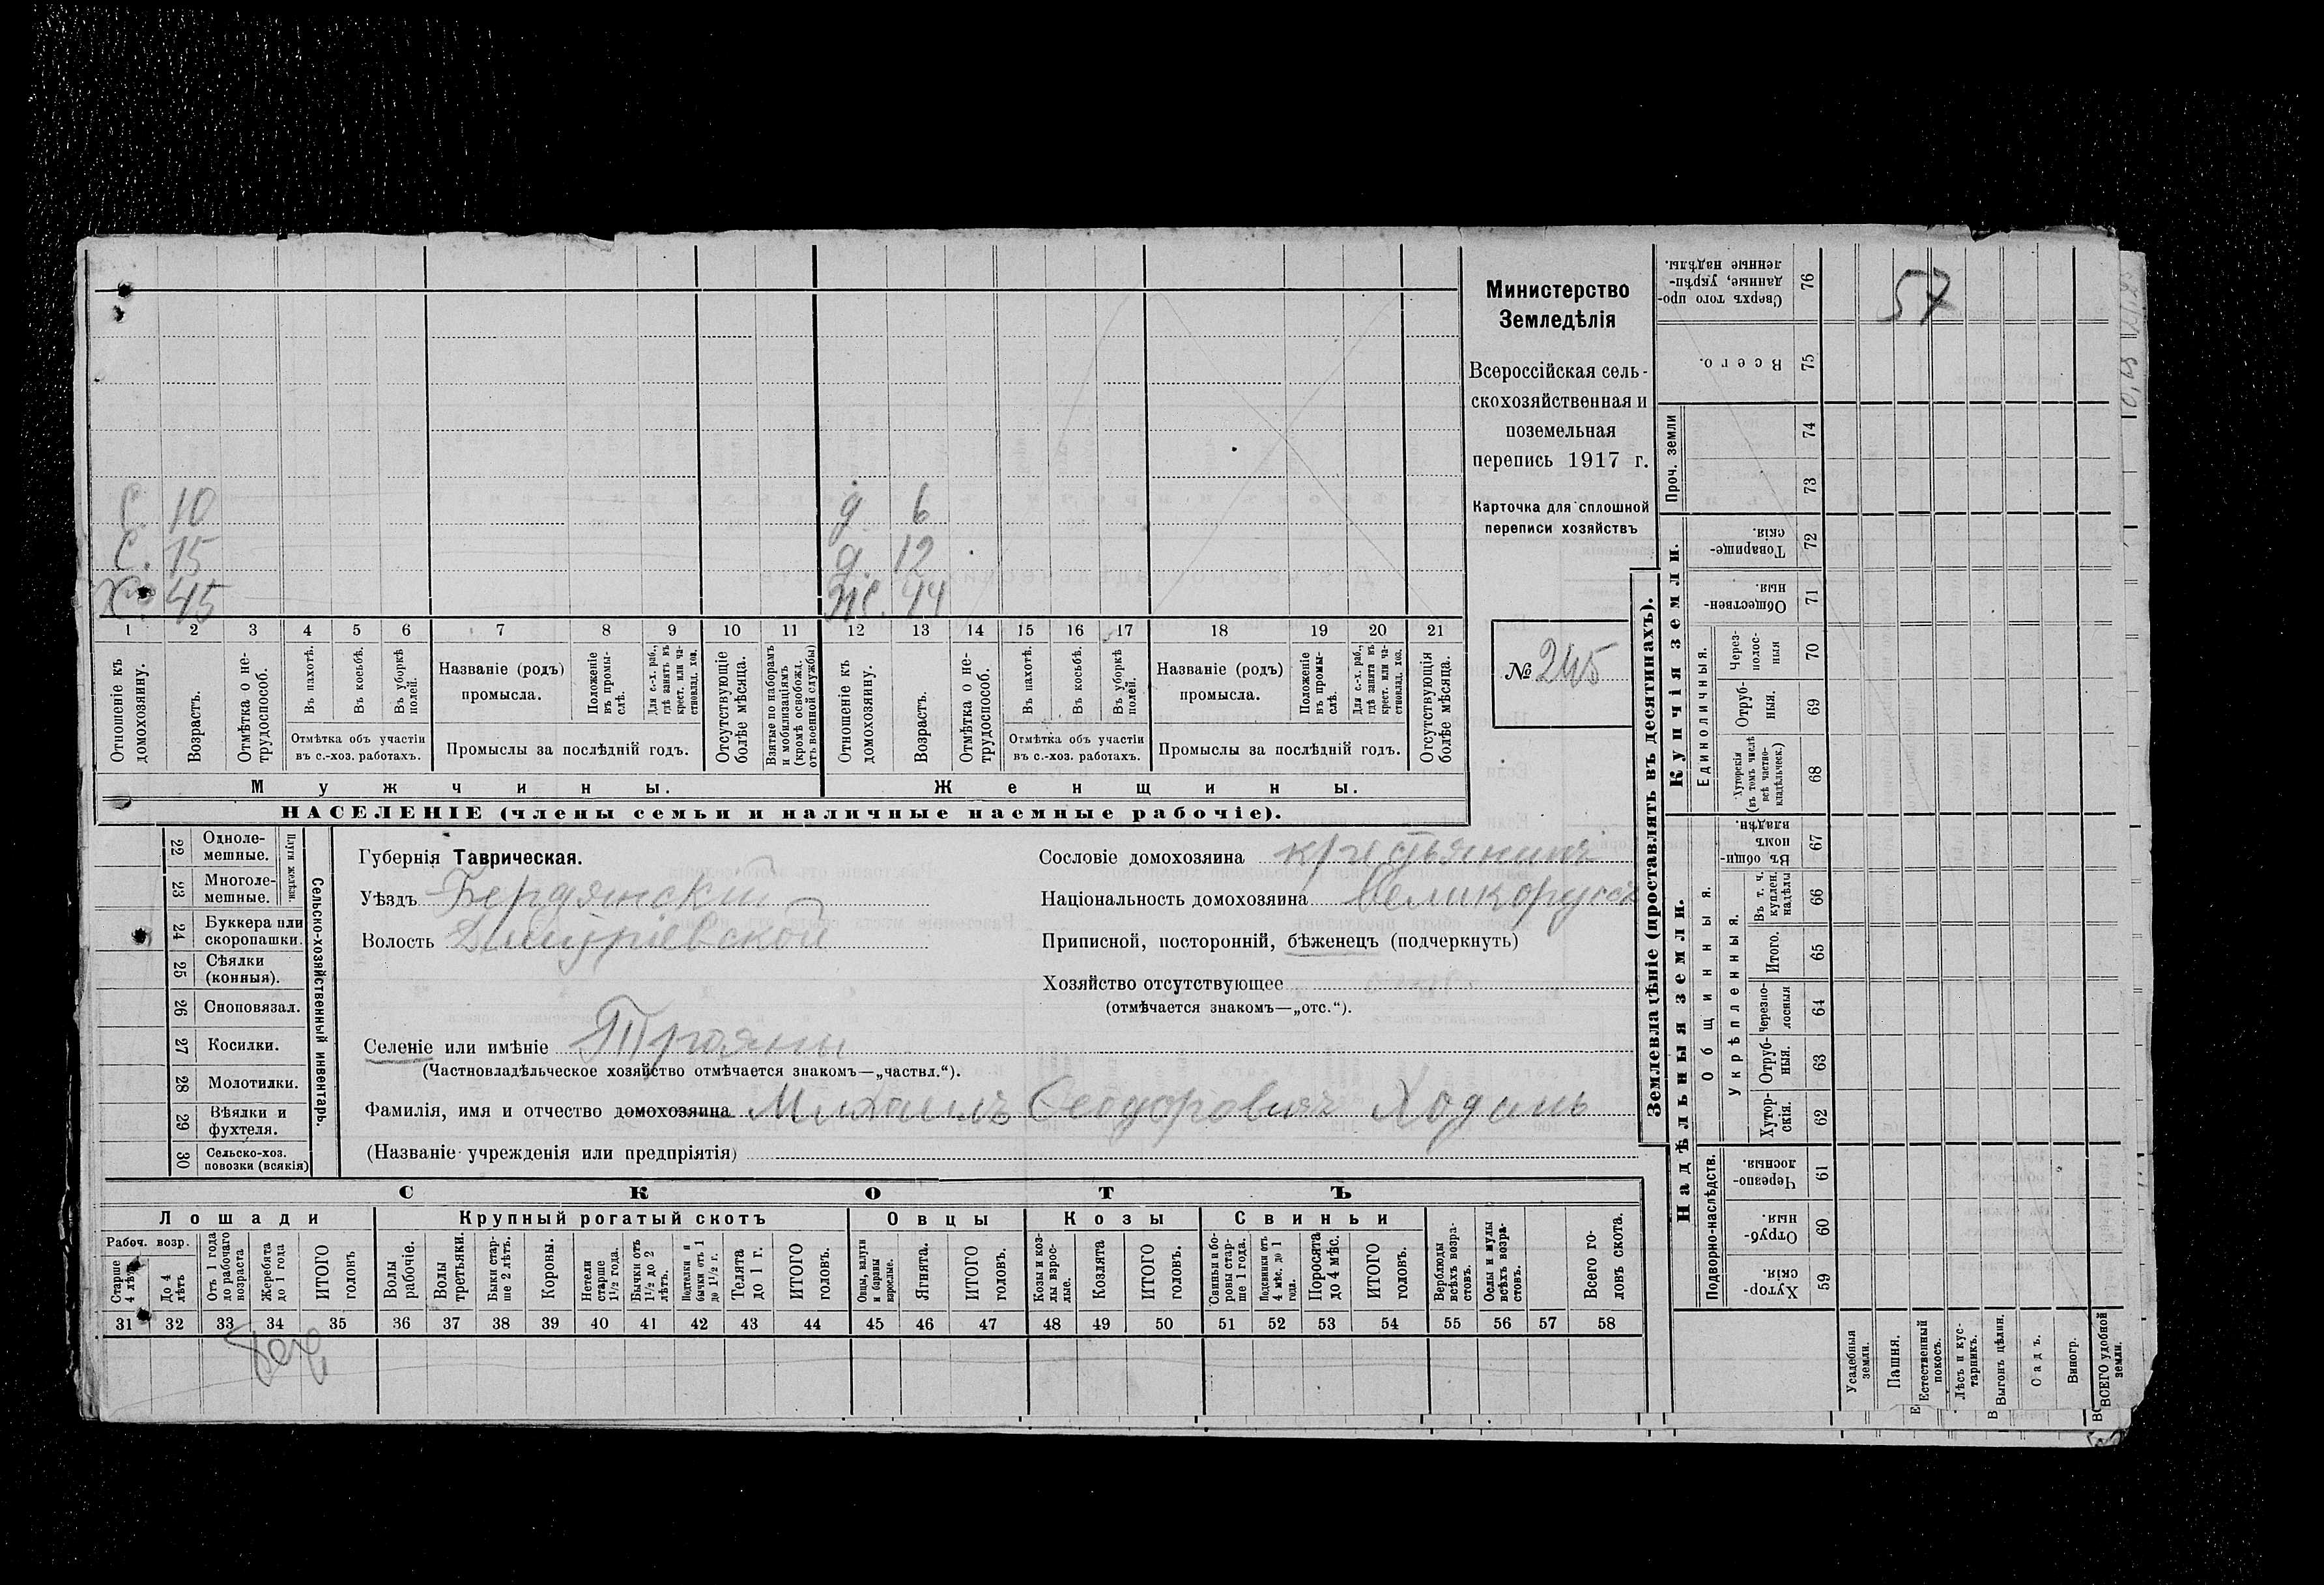 С. 10 д. 6
С. 15 д. 12
Хо. 45 Ж. 44
1 2 3 4 5 6 7 8 9 10 11 12 13 14 15 16 17 18 19 20 21
Отношеніе къ домохозяину.
Возрастъ.
Отмѣтка о не-трудоспособ.
Въ пахотѣ.
Въ косьбѣ.
Въ уборкѣ полей.
Отмѣтка объ участіи въ с.-хоз. работахъ.
Названіе (родъ) промысла.
Положеніе въ промы-слѣ.
Для с.-х. раб., гдѣ занятъ въ крест. или ча-стновлад. хоз.
Промыслы за послѣдній годъ.
Отсутствующіе болѣе мѣсяца.
Взятые по наборамъ и мобилизаціямъ (кромѣ освобожд. отъ военной службы)
Отношеніе къ домохозяину.
Возрастъ.
Отмѣтка о не-трудоспособ.
Въ пахотѣ.
Въ косьбѣ.
Въ уборкѣ полей.
Отмѣтка объ участіи въ с.-хоз. работахъ.
Названіе (родъ) промысла.
Положеніе въ промы-слѣ.
Для с.-х. раб., гдѣ занята въ крест. или ча-стновлад. хоз.
Промыслы за послѣдній годъ.
Отсутствующія болѣе мѣсяца.
Мужчины. Женщины.
НАСЕЛЕНІЕ (члены семьи и наличные наемные рабочіе).
Министерство
Земледѣлія
Всероссійская сель-
скохозяйственная и
поземельная
перепись 1917 г.
Карточка для сплошной
переписи хозяйствъ
№ 245
Сельско-хозяйственный инвентарь.
Плуги желѣзн.
22 Одноле-мешные.
23 Многоле-мешные.
24 Буккера или скоропашки.
25 Сѣялки (конныя).
26 Сноповязал.
27 Косилки.
28 Молотилки.
29 Вѣялки и фухтеля.
30 Сельско-хоз. повозки (всякія)
Губернія Таврическая.
Уѣздъ Бердянскій
Волость Дмитріевской
Сословіе домохозяина крестьянинъ
Національность домохозяина великорусъ
Приписной, посторонній, бѣженецъ (подчеркнуть)
Хозяйство отсутствующее
(отмѣчается знакомъ—„отс.“).
Селеніе или имѣніе Трояны
(Частновладѣльческое хозяйство отмѣчается знакомъ—„частвл.“).
Фамилія, имя и отчество домохозяина Михаилъ Феодоровичъ Ходань
(Названіе учрежденія или предпріятія)
СКОТЪ
Лошади Крупный рогатый скотъ Овцы Козы Свиньи
Рабоч. возр.
Старше 4 лѣтъ
До 4 лѣтъ
Отъ 1 года до рабочаго возраста
Жеребята до 1 года
ИТОГО головъ
Волы рабочіе.
Волы третьяки.
Быки стар-ше 2 лѣтъ.
Коровы.
Нетели старше 1½ года.
Бычки отъ 1½ до 2 лѣтъ.
Подтелки и бычки отъ 1 до 1½ г.
Телята до 1 г.
ИТОГО головъ.
Овцы, валухи и бараны взрослые.
Ягнята.
ИТОГО головъ.
Козы и коз-лы взрос-лые.
Козлята
ИТОГО головъ.
Свиньи и бо-ровы стар-ше 1 года.
Подсвинки отъ 4 мѣс. до 1 года.
Поросята до 4 мѣс.
ИТОГО головъ.
Верблюды всѣхъ возра-стовъ.
Ослы и мулы всѣхъ возра-стовъ.
Всего го-ловъ скота.
31 32 33 34 35 36 37 38 39 40 41 42 43 44 45 46 47 48 49 50 51 52 53 54 55 56 57 58
Землевладѣніе (проставлять въ десятинахъ).
57
Сверхъ того про-данные, укрѣп-ленные надѣлы. 76
Всего. 75
Проч. земли
74
73
Купчія земли.
Товарище-скія. 72
Обществен-ныя. 71
Единоличныя.
Через-полос-ныя 70
Отруб-ныя. 69
Хуторскія (въ томъ числѣ всѣ частно-владѣльческ.) 68
Надѣльныя земли.
Общинныя.
Въ общин-номъ владѣн. 67
Укрѣпленныя.
Въ т. ч. куплен. надѣлы 66
Итого. 65
Черезпо-лосныя 64
Отруб-ныя. 63
Хутор-скія. 62
Подворно-наслѣдств.
Черезпо-лосныя. 61
Отруб-ныя. 60
Хутор-скія. 59
Усадебныя земли.
Пашня.
Естественный покосъ.
Лѣсъ и кус-тарникъ.
Выгонъ цѣлин.
Садъ.
Виногр.
ВСЕГО удобной земли.